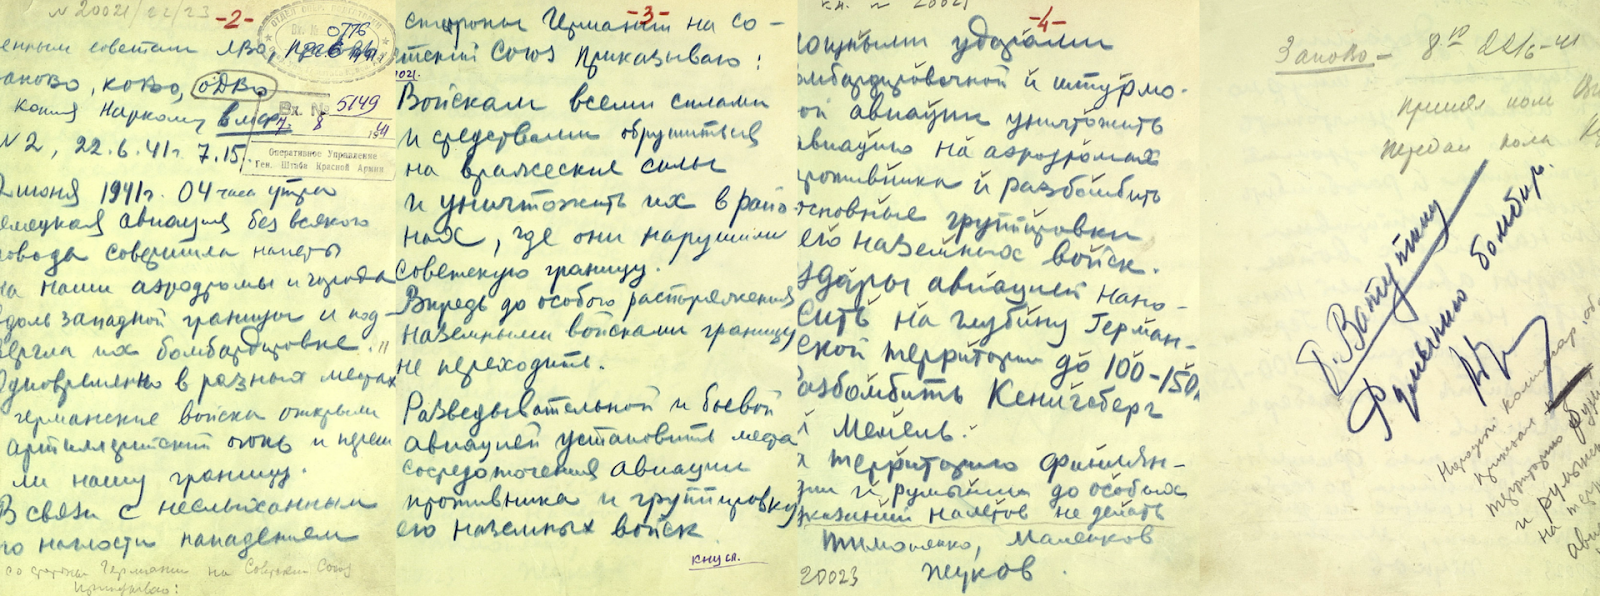 N 20021/22/23
-2-
0776
енным советам ЛВО, ПрибОВО
аново, КОВО, ОДВО
Вх. № 5149
копия Наркому в мор
8
N 2, 22.6.41 г. 7.15
Оперативное Управление
Ген. Штаба Красной Армии
июня 1941 г. 04 часа утра
емецкая авиация без всякого
овода совершила налеты
на наши аэродромы и города
доль западной границы и под-
вергла их бомбардировке.
Одновременно в разных местах
германские войска открыли
артиллерийский огонь и переш
ли нашу границу.
В связи с неслыханным
по наглости нападением
со стороны Германии на Советский Союз
Приказываю:
-3-
стороны Германии на со-
тский Союз Приказываю:
Войскам всеми силами
и средствами обрушиться
на вражеские силы
и уничтожить их в райо
нах, где они нарушили
Советскую границу.
Впредь до особого распоряжения
наземными войсками границу
не переходить.
Разведывательной и боевой
авиацией установить места
сосредоточения авиации
противника и группировку
его наземных войск
20021
-4-
ощными ударами
омбардировочной и штурмо-
ой авиации уничтожить
авиацию на аэродромах
противника и разбомбить
основные группировки
его наземных войск.
Удары авиацией нано-
сить на глубину Герман-
ской территории до 100-150
Разбомбить Кенигсберг
и Мемель.
территорию Финлян-
дии и Румынии до особых
указаний налетов не делать
Тимошенко, Маленков
Жуков.
20023
Запово- 8 10 22/6-41
принял пом
передал пом
Т. Ватутину
Румынию бомбир.
Народный комиссар
приказал
территорию
и румын
на тер
ави